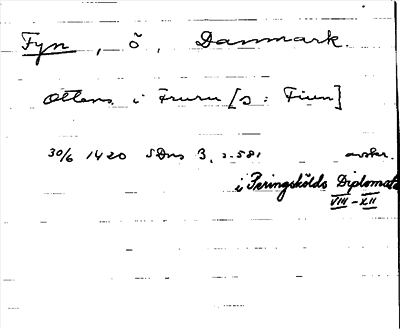 Fyn, ö, Danmark.
Ottens i Fruru [ɔ: Fiun]
30/6 1420 SDns 3, s. 581 avskr.
i Peringskölds Diplomata
VIII-XII